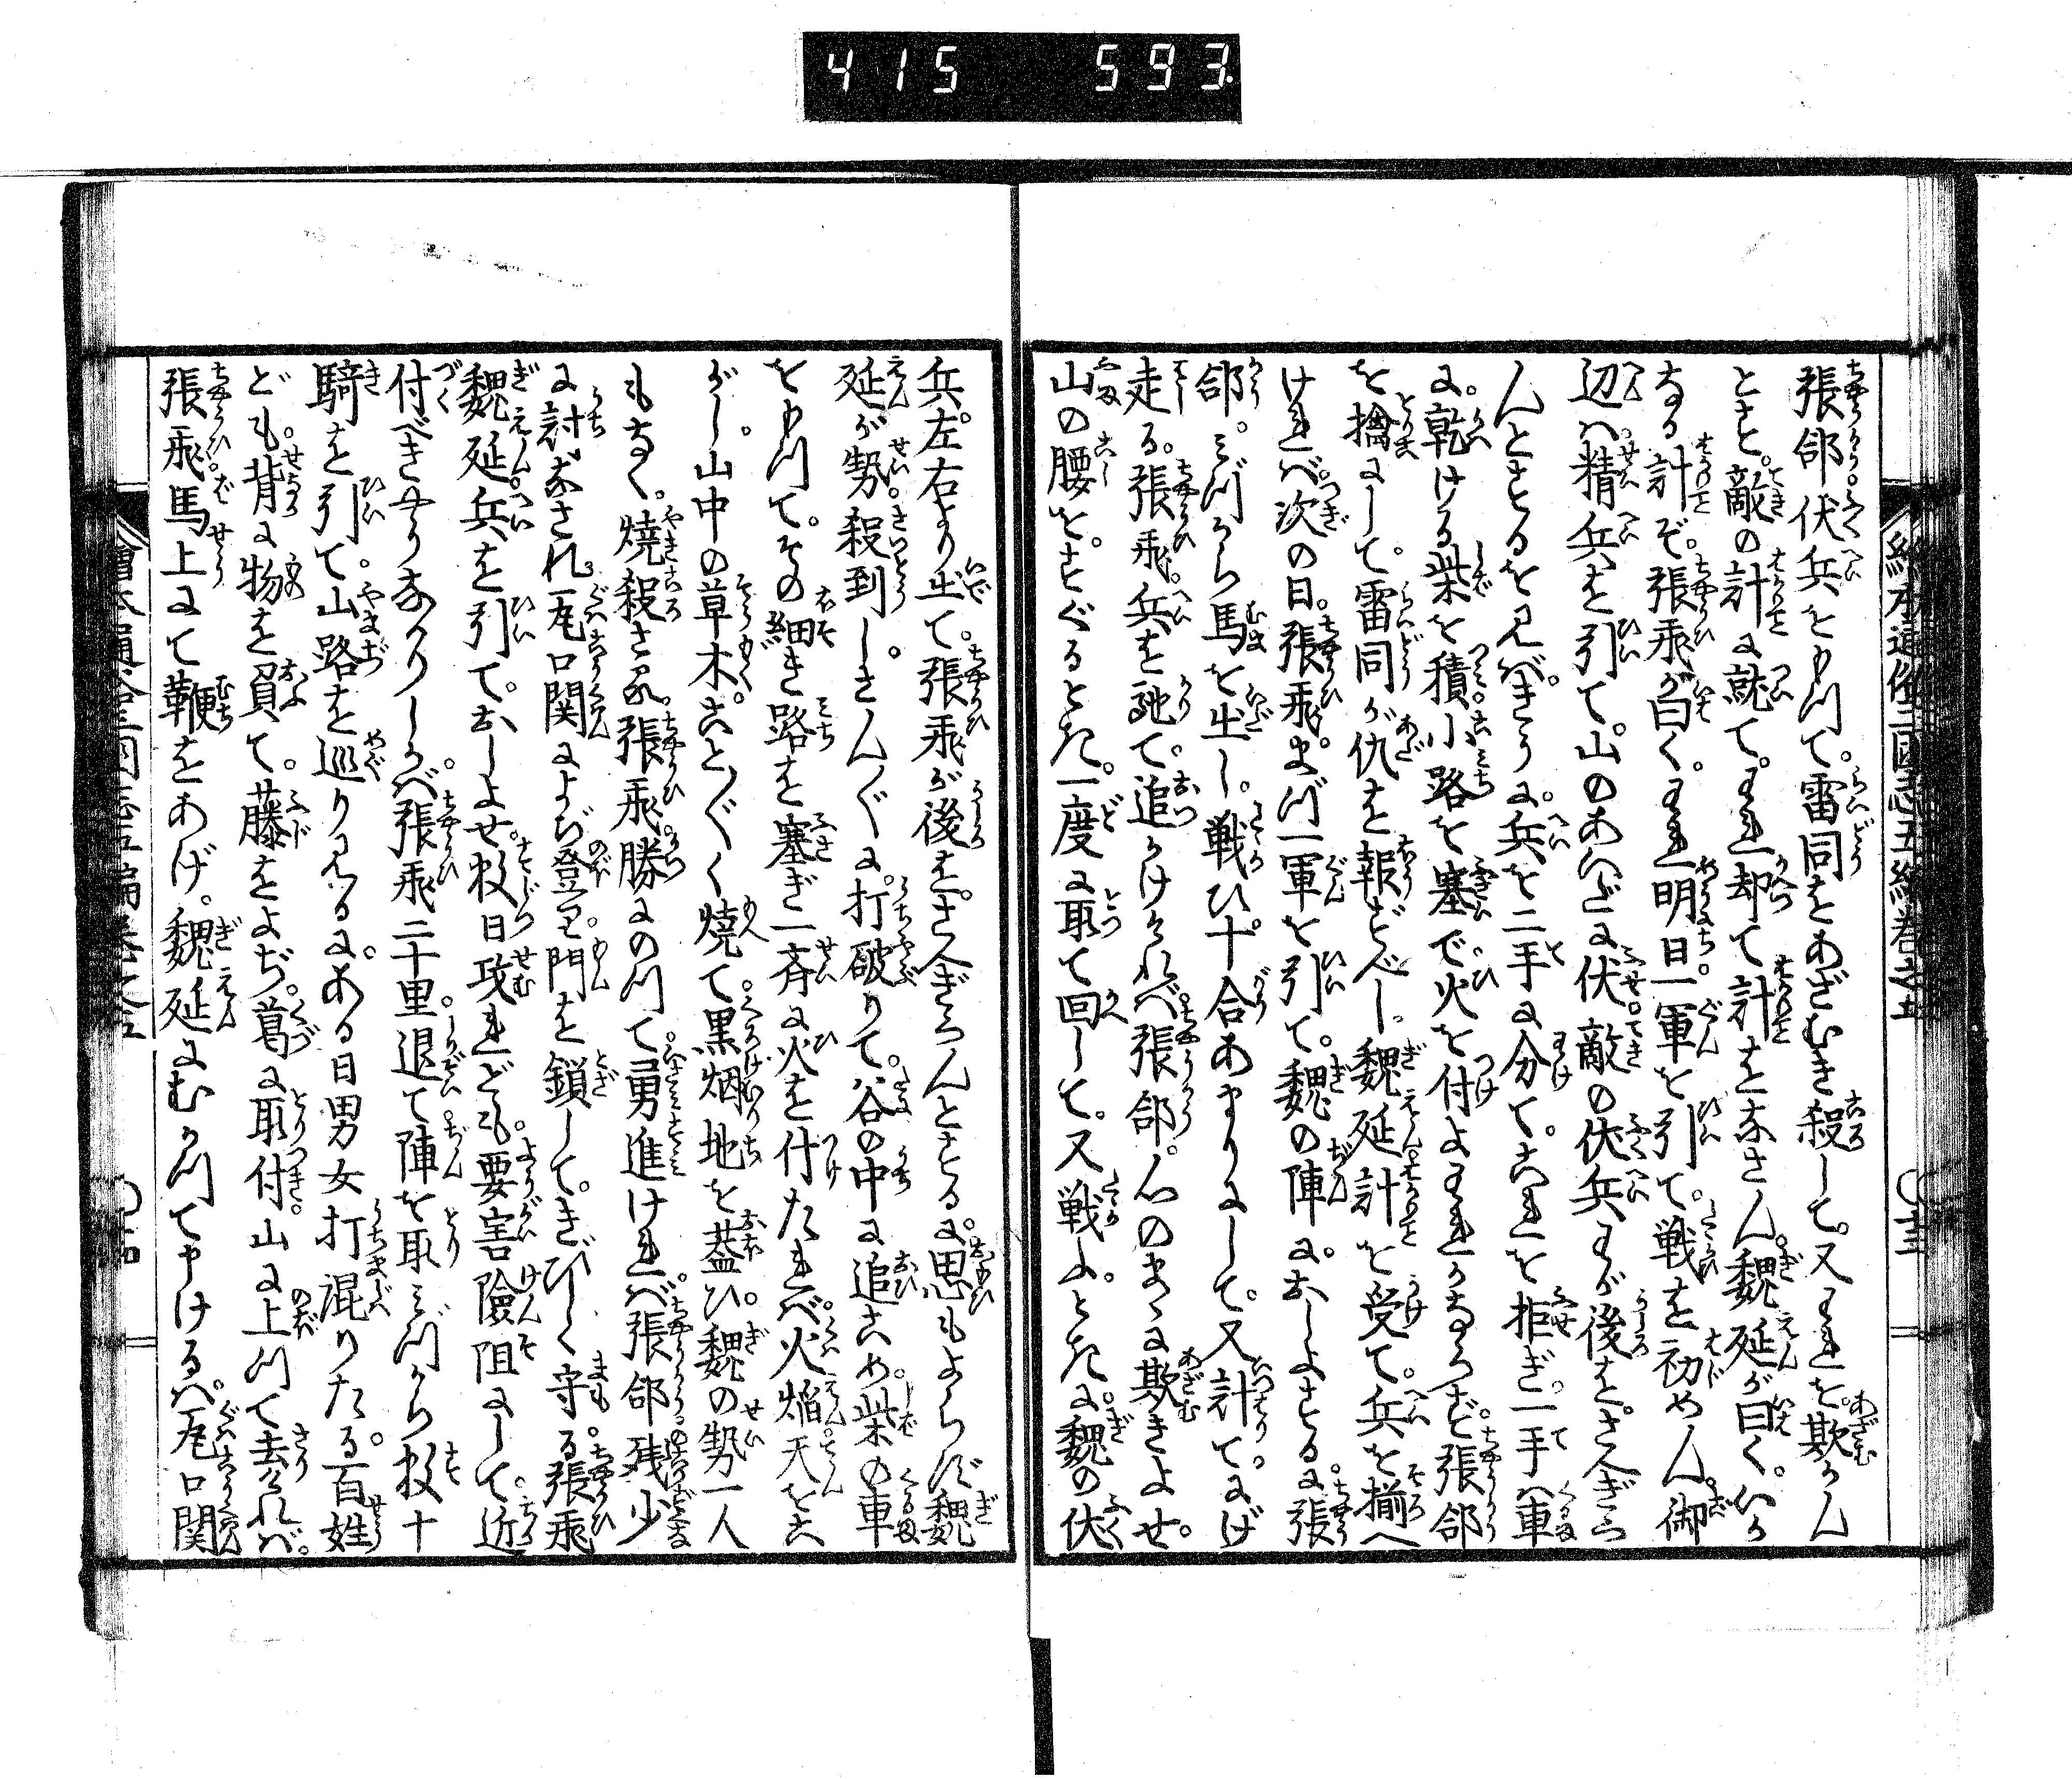 415 593
張郃伏兵をもつて。雷同をあざむき殺して。又われを。欺かん
とす。敵の計に就て。われ却て計をなさん。魏延が曰く。いか
なる計ぞ。張飛が曰く。われ明日一軍を引て。戦を初めん。御
辺ハ精兵を引て。山のあハ𛂞ひだに伏。敵の伏兵わが後をさへぎら
んとするを見バ。きうに。兵を二手に分て。これを拒ぎ。一手ハ車
に。乾ける柴を積。小路を塞で火を付よ。われかならず。張郃
を擒にして。雷同が仇を報ずべし。魏延計を受て。兵を揃へ
けれバ。次の日。張飛。まづ一軍を引て。魏の陣に。おしよする に。張
郃。みづから馬を出し。戦ひ十合あまりにして。又計て。にげ
走る。張飛。兵を駈て。追かけけれバ。張郃。心のまゝに欺きよせ。
山の腰を。すぐるとき。一度に取て回して。又戦ふ。ときに。魏の伏
兵。左右より出て。張飛が後を。さへぎらんとする に。思もよらず魏
延が勢。殺到し。さん〴〵に。打破りて。谷の中に追こめ。柴の車
をもつて。その細き路を塞ぎ一斉に火を付たれバ。火焔天をこ
がし。山中の草木。こと〴〵く焼て。黒烟地を蓋ひ。魏の勢一人
もなく。焼殺さる。張飛。勝にのつて。勇進けれバ。張郃残少
に討なされ。瓦口関によぢ登り。門を鎖して。きびしく守る。張飛
魏延。兵を引て。おしよせ。数日攻れども。要害険阻にして。近
付べきやうなかりしかバ。張飛二十里退て陣を取。みづから数十
騎を引て。山路を巡り見るに。ある日男女打混りたる。百姓
ども。背に物を負て。藤をよぢ。葛に取付。山に上つて去けれバ。
張飛。馬上にて鞭をあげ。魏延にむかつて申けるハ。瓦口関